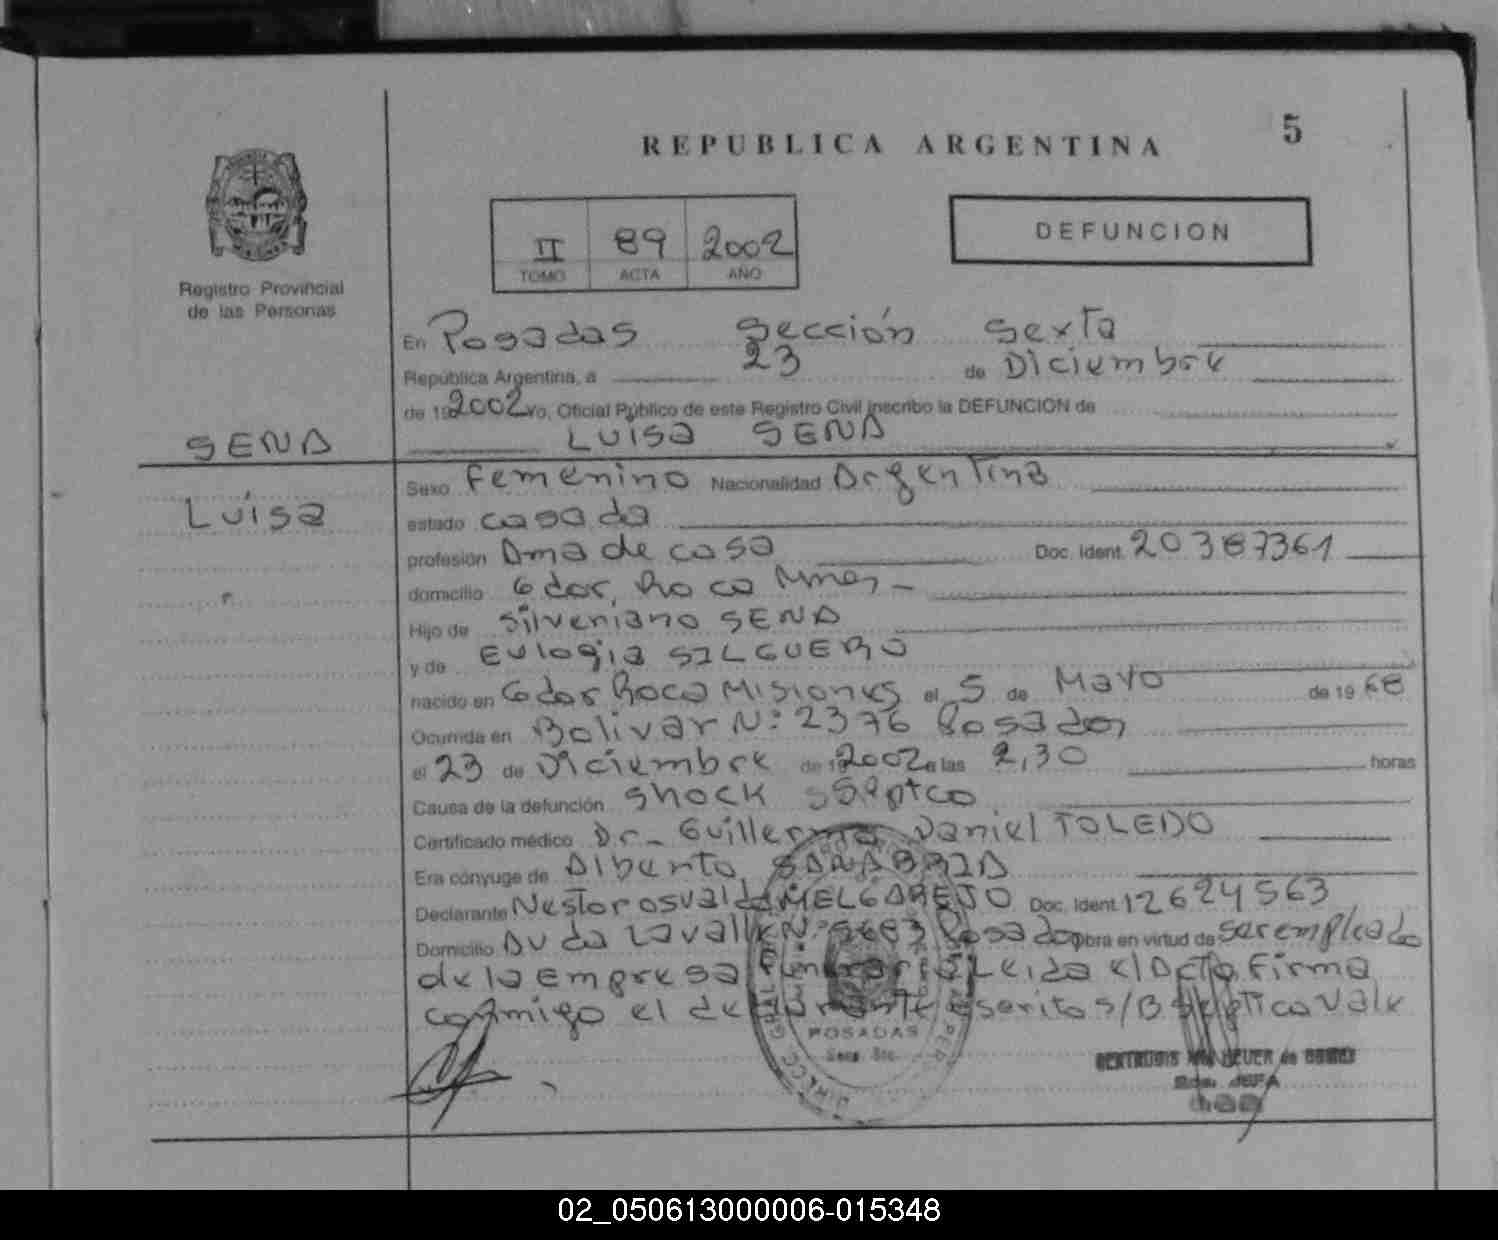 REPUBLICA ARGENTINA
5
II 89 2002
TOMO ACTA AÑO
DEFUNCION
Registro Provincial
de las Personas
En Posadas Sección Sexta
República Argentina, a 23 de Diciembre
de 19 2002 yo, Oficial Público de este Registro Civil inscribo la DEFUNCION de
SENA
LUISA SENA
Luisa
Sexo Femenino Nacionalidad Argentina
estado casada
profesión Ama de casa Doc. Ident. 20387361
domicilio Gdor. Roca Mnes -
Hijo de Silveriano SENA
y de Eulogia SILGUERO
nacido en Gdor Roca Misiones el 5 de Mayo de 19 68
Ocurrida en Bolivar Nº: 2376 Posadas
el 23 de Diciembre de 19 2002 a las 2,30 horas
Causa de la defunción Shock Séptco
Certificado médico Dr- Guillermo Daniel TOLEDO
Era cónyuge de Alberto SANABRIA
Declarante Nestor osvaldo MELGAREJO Doc. Ident. 12624563
Domicilio Av da Lavalle Nº 5683 Posadas Obra en virtud de ser empleado
de la Empresa Funeraria Leida el Acta Firma
conmigo el declarante escrito S/B Septico Vale
POSADAS
02_050613000006-015348